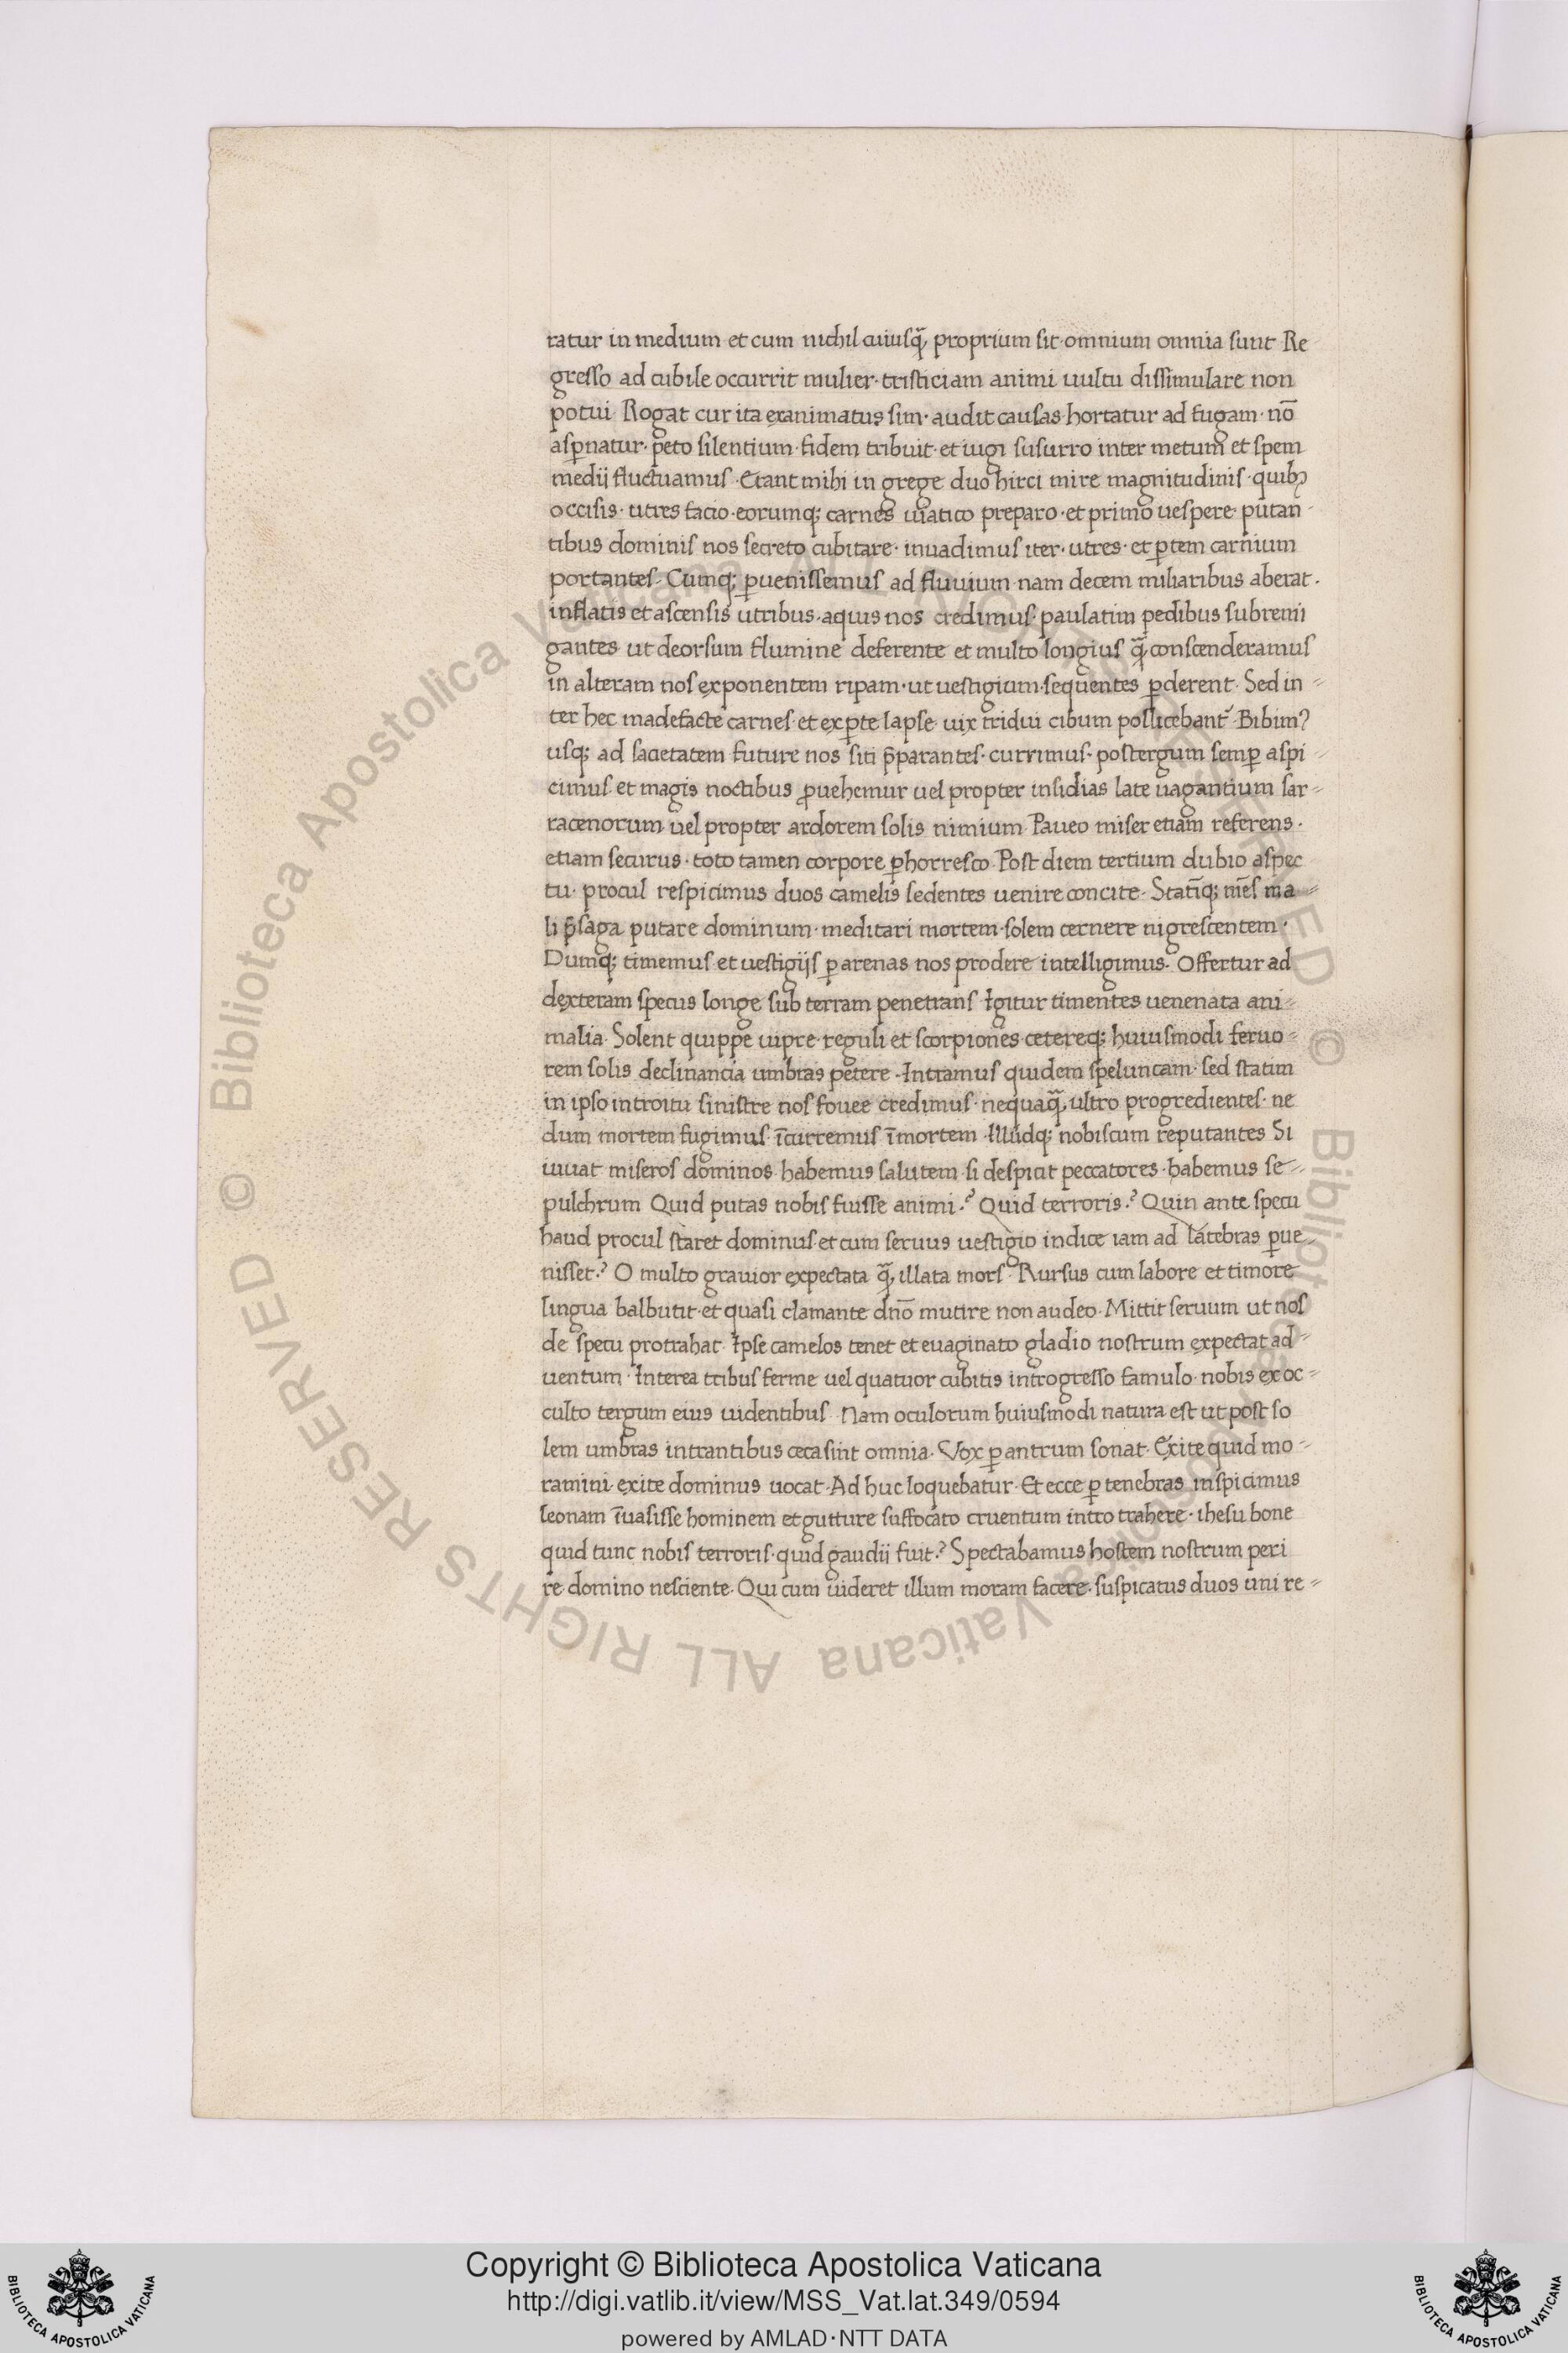 ratur in medium et cum nichil cuiusq̃ proprium sit · omnium omnia sunt Re
gresso ad cubile occurrit mulier · tristiciam animi uultu dissimulare non
potui Rogat cur ita exanimatus sim · audit causas hortatur ad fugam · nõ
aspnatur · peto silentium · fidem tribuit · et iugi susurro inter metum et spem
medij fluctuamus · Erant mihi in grege duo hirci mire magnitudinis · quibꝫ
occisis · utres facio · eorumqꝫ carnes uiatico preparo · et primo uespere putan
tibus dominis nos secreto cubitare · inuadimus iter · utres · et ꝑtem carnium
portantes · Cumqꝫ ꝑuenissemus ad fluuium nam decem miliaribus aberat ·
inflatis et ascensis utribus · aquis nos credimus · paulatim pedibus subremi
gantes ut deorsum flumine deferente et multo longius q̃ conscenderamus
in alteram nos exponentem ripam · ut uestigium sequentes ꝑderent · Sed in
ter hec madefacte carnes et ex ꝑte lapse uix tridui cibum pollicebant᷑ Bibimꝰ
usqꝫ ad sacietatem future nos siti p̃parantes · currimus · postergum semꝑ aspi
cimus et magis noctibus ꝓuehemur uel propter insidias late uagantium sar
racenorum uel propter ardorem solis nimium Paueo miser etiam referens ·
etiam securus · toto tamen corpore ꝑhorresco Post diem tertium dubio aspec
tu · procul respicimus duos camelis sedentes uenire concite · Statĩqꝫ mẽs ma
li p̃saga putare dominum · meditari mortem · solem cernere nigrescentem ·
Dumqꝫ timemus et uestigijs ꝑ arenas nos prodere intelligimus · Offertur ad
dexteram specus longe sub terram penetrans Igitur timentes uenenata ani
malia · Solent quippe uipre reguli et scorpiones cetereqꝫ huiusmodi feruo
rem solis declinancia umbras petere · Intramus quidem speluncam · sed statim
in ipso introitu sinistre nos fouee credimus · nequaq̃ ultro progredientes · ne
dum mortem fugimus · ĩcurremus ĩ mortem · Illudqꝫ nobiscum reputantes Si
iuuat miseros dominos habemus salutem · si despicit peccatores · habemus se
pulchrum Quid putas nobis fuisse animi ·? Quid terroris ·? Quin ante specu
haud procul staret dominus · et cum seruus uestigio indice iam ad latebras ꝑue
nisset ·? O multo grauior expectata q̃ illata mors · Rursus cum labore et timore
lingua balbutit · et quasi clamante dño mutire non audeo · Mittit seruum ut nos
de specu protrahat · Ipse camelos tenet et euaginato gladio nostrum expectat ad
uentum · Interea tribus ferme uel quatuor cubitis introgresso famulo · nobis ex oc
culto tergum eius uidentibus · Nam oculorum huiusmodi natura est ut post so
lem umbras intrantibus ceca sint omnia · Vox ꝑ antrum sonat · Exite quid mo
ramini · exite dominus uocat · Ad huc loquebatur · Et ecce ꝑ tenebras inspicimus
leonam ĩuasisse hominem et gutture suffocato cruentum intro trahere · ihesu bone
quid tunc nobis terroris · quid gaudii fuit ·? Spectabamus hostem nostrum peri
re domino nesciente · Qui cum uideret illum moram facere · suspicatus duos uni re
© Biblioteca Apostolica Vaticana ALL RIGHTS RESERVED © Biblioteca Apostolica Vaticana ALL RIGHTS RESERVED
Copyright © Biblioteca Apostolica Vaticana
http://digi.vatlib.it/view/MSS_Vat.lat.349/0594
powered by AMLAD·NTT DATA
BIBLIOTECA APOSTOLICA VATICANA
BIBLIOTECA APOSTOLICA VATICANA